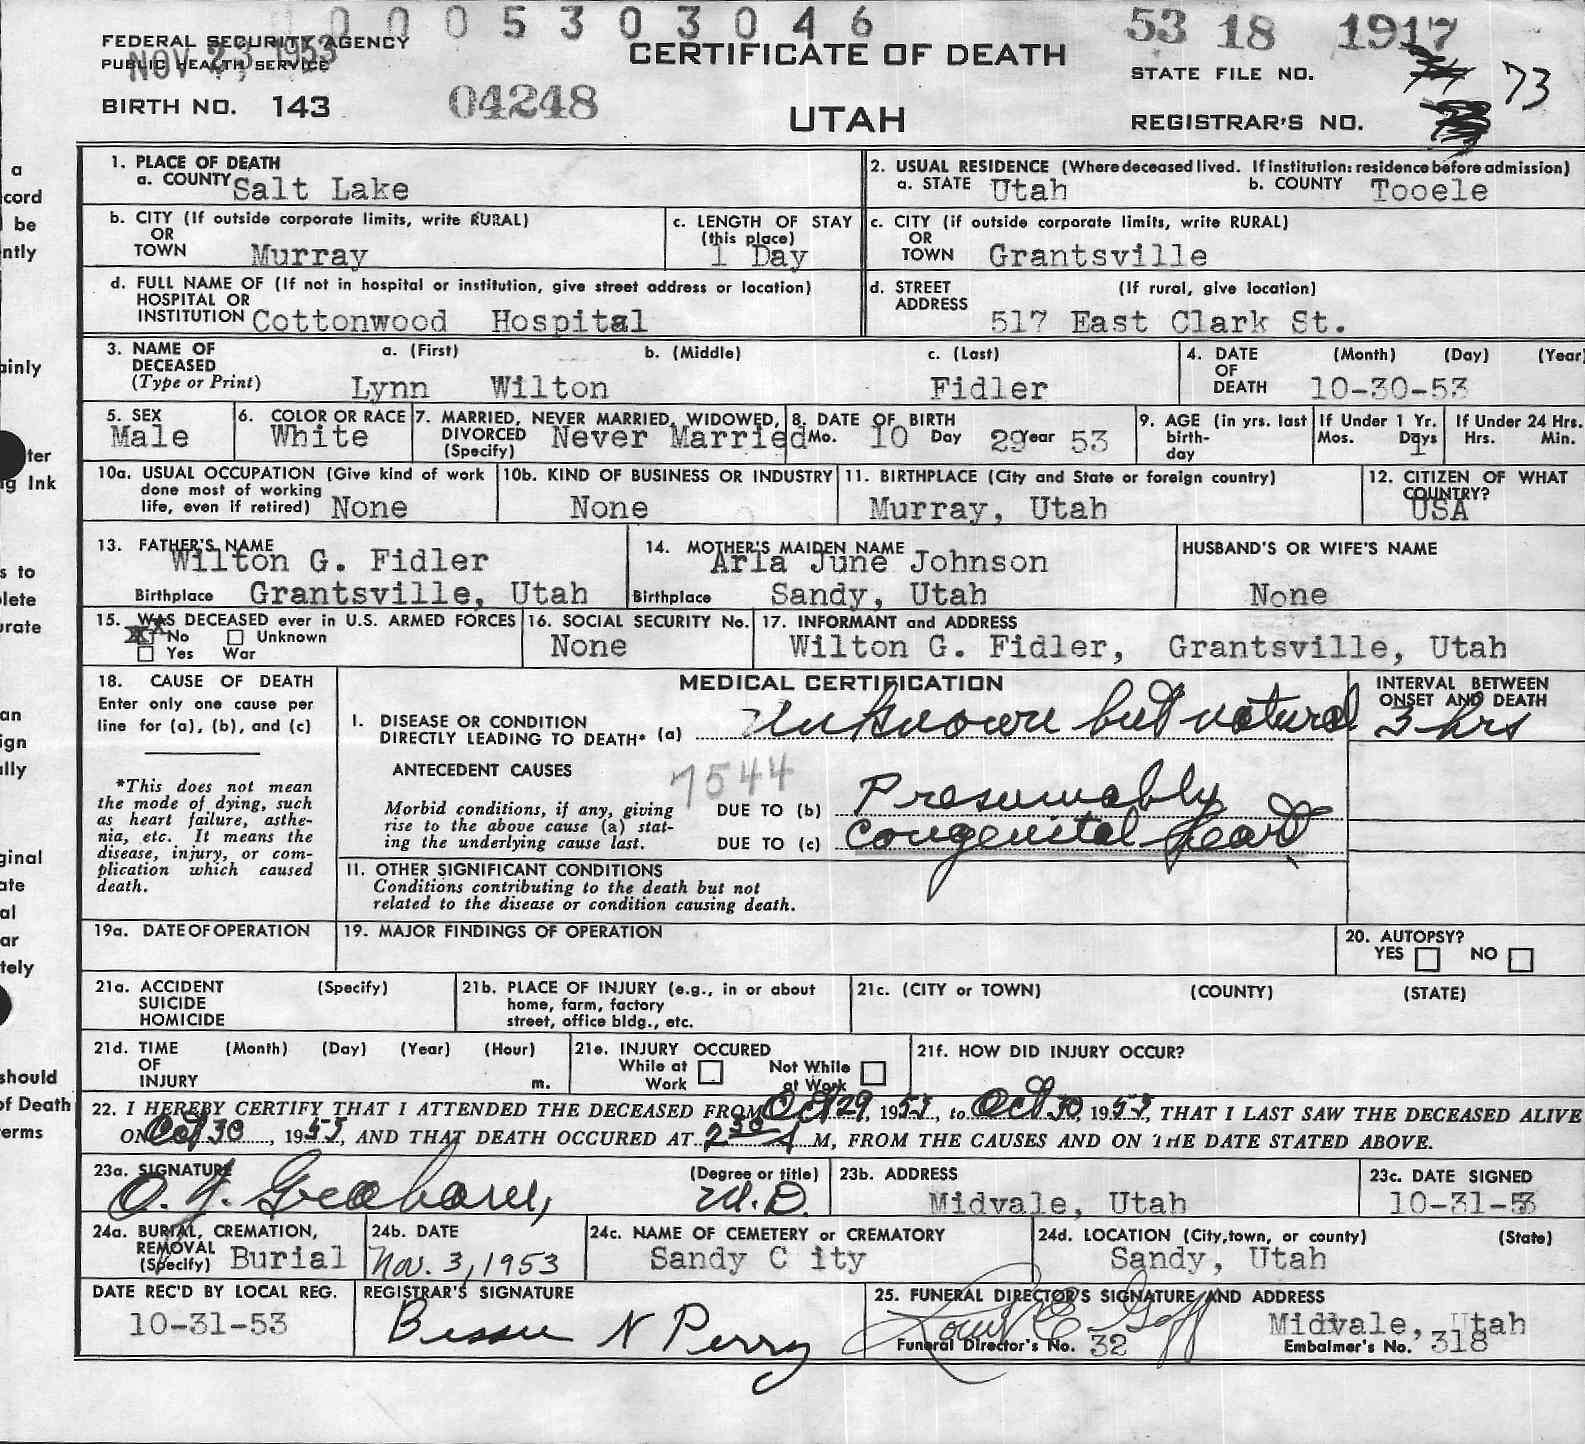 0005303046
53 18 1917
FEDERAL SECURITY AGENCY
PUBLIC HEALTH SERVICE
NOV 23, 1953
CERTIFICATE OF DEATH
STATE FILE NO.
73
BIRTH NO. 143
04248
UTAH
REGISTRAR'S NO.
1. PLACE OF DEATH
a. COUNTY Salt Lake
2. USUAL RESIDENCE (Where deceased lived. If institution: residence before admission)
a. STATE Utah b. COUNTY Tooele
b. CITY (If outside corporate limits, write RURAL)
OR
TOWN Murray
c. LENGTH OF STAY
(this place)
1 Day
c. CITY (if outside corporate limits, write RURAL)
OR
TOWN Grantsville
d. FULL NAME OF (If not in hospital or institution, give street address or location)
HOSPITAL OR
INSTITUTION Cottonwood Hospital
d. STREET (If rural, give location)
ADDRESS
517 East Clark St.
3. NAME OF a. (First) b. (Middle) c. (Last)
DECEASED
(Type or Print) Lynn Wilton Fidler
4. DATE (Month) (Day) (Year
OF
DEATH 10-30-53
5. SEX
Male
6. COLOR OR RACE
White
7. MARRIED, NEVER MARRIED, WIDOWED,
DIVORCED Never Married
(Specify)
8. DATE OF BIRTH
Mo. 10 Day 29 Year 53
9. AGE (in yrs. last
birth-
day
If Under 1 Yr.
Mos. Days
1
If Under 24 Hrs.
Hrs. Min.
10a. USUAL OCCUPATION (Give kind of work
done most of working
life, even if retired) None
10b. KIND OF BUSINESS OR INDUSTRY
None
11. BIRTHPLACE (City and State or foreign country)
Murray, Utah
12. CITIZEN OF WHAT
COUNTRY?
USA
13. FATHER'S NAME
Wilton G. Fidler
Birthplace Grantsville, Utah
14. MOTHER'S MAIDEN NAME
Arla June Johnson
Birthplace Sandy, Utah
HUSBAND'S OR WIFE'S NAME
None
15. WAS DECEASED ever in U.S. ARMED FORCES
No Unknown
Yes War
16. SOCIAL SECURITY No.
None
17. INFORMANT and ADDRESS
Wilton G. Fidler, Grantsville, Utah
18. CAUSE OF DEATH
Enter only one cause per
line for (a), (b), and (c)
*This does not mean
the mode of dying, such
as heart failure, asthe-
nia, etc. It means the
disease, injury, or com-
plication which caused
death.
MEDICAL CERTIFICATION
INTERVAL BETWEEN
ONSET AND DEATH
I. DISEASE OR CONDITION
DIRECTLY LEADING TO DEATH* (a) Unknown but natural 3 hrs
ANTECEDENT CAUSES 7544
Morbid conditions, if any, giving
rise to the above cause (a) stat-
ing the underlying cause last.
DUE TO (b) Presumably
DUE TO (c) Congenital heart
11. OTHER SIGNIFICANT CONDITIONS
Conditions contributing to the death but not
related to the disease or condition causing death.
19a. DATE OF OPERATION
19. MAJOR FINDINGS OF OPERATION
20. AUTOPSY?
YES NO
21a. ACCIDENT (Specify)
SUICIDE
HOMICIDE
21b. PLACE OF INJURY (e.g., in or about
home, farm, factory
street, office bldg., etc.
21c. (CITY or TOWN) (COUNTY) (STATE)
21d. TIME (Month) (Day) (Year) (Hour)
OF
INJURY m.
21e. INJURY OCCURED
While at Not While
Work at Work
21f. HOW DID INJURY OCCUR?
22. I HEREBY CERTIFY THAT I ATTENDED THE DECEASED FROM Oct 29, 1953, to Oct 30, 1953, THAT I LAST SAW THE DECEASED ALIVE
ON Oct 30, 1953, AND THAT DEATH OCCURED AT 2 30 A M, FROM THE CAUSES AND ON THE DATE STATED ABOVE.
23a. SIGNATURE (Degree or title)
M.D.
23b. ADDRESS
Midvale, Utah
23c. DATE SIGNED
10-31-53
24a. BURIAL, CREMATION,
REMOVAL
(Specify) Burial
24b. DATE
Nov. 3, 1953
24c. NAME OF CEMETERY or CREMATORY
Sandy C ity
24d. LOCATION (City, town, or county) (State)
Sandy, Utah
DATE REC'D BY LOCAL REG.
10-31-53
REGISTRAR'S SIGNATURE
Bessie N Perry
25. FUNERAL DIRECTOR'S SIGNATURE AND ADDRESS
Goff Midvale, Utah
Funeral Director's No. 32 Embalmer's No. 318
a
cord
be
ntly
ainly
ter
g Ink
s to
lete
urate
an
ign
ally
ginal
ate
al
ar
tely
should
of Death
erms